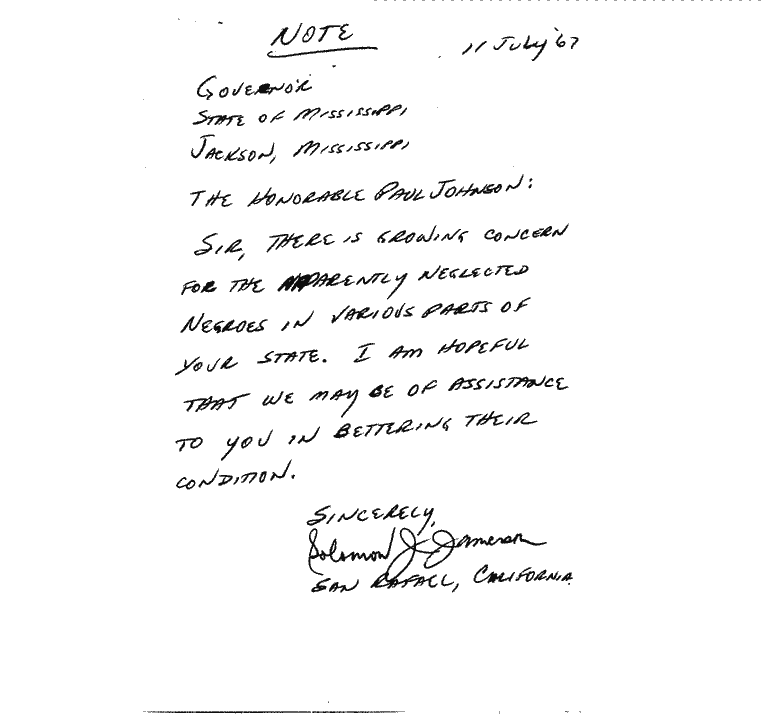 NOTE
11 July '67
GOVERNOR
STATE OF MISSISSIPPI
JACKSON, MISSISSIPPI
THE HONORABLE PAUL JOHNSON:
SIR, THERE IS GROWING CONCERN
FOR THE APPARENTLY NEGLECTED
NEGROES IN VARIOUS PARTS OF
YOUR STATE. I AM HOPEFUL
THAT WE MAY BE OF ASSISTANCE
TO YOU IN BETTERING THEIR
CONDITION.
SINCERELY,
Solomon J. Jameson
SAN RAFAEL, CALIFORNIA